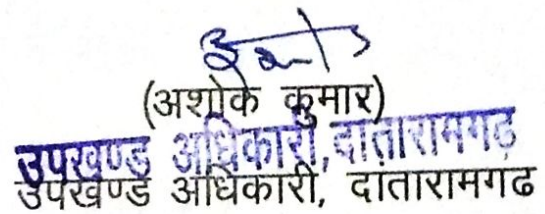 (अशोक कुमार)
उपखण्ड अधिकारी,दातारामगढ़
उपखण्ड अधिकारी, दातारामगढ